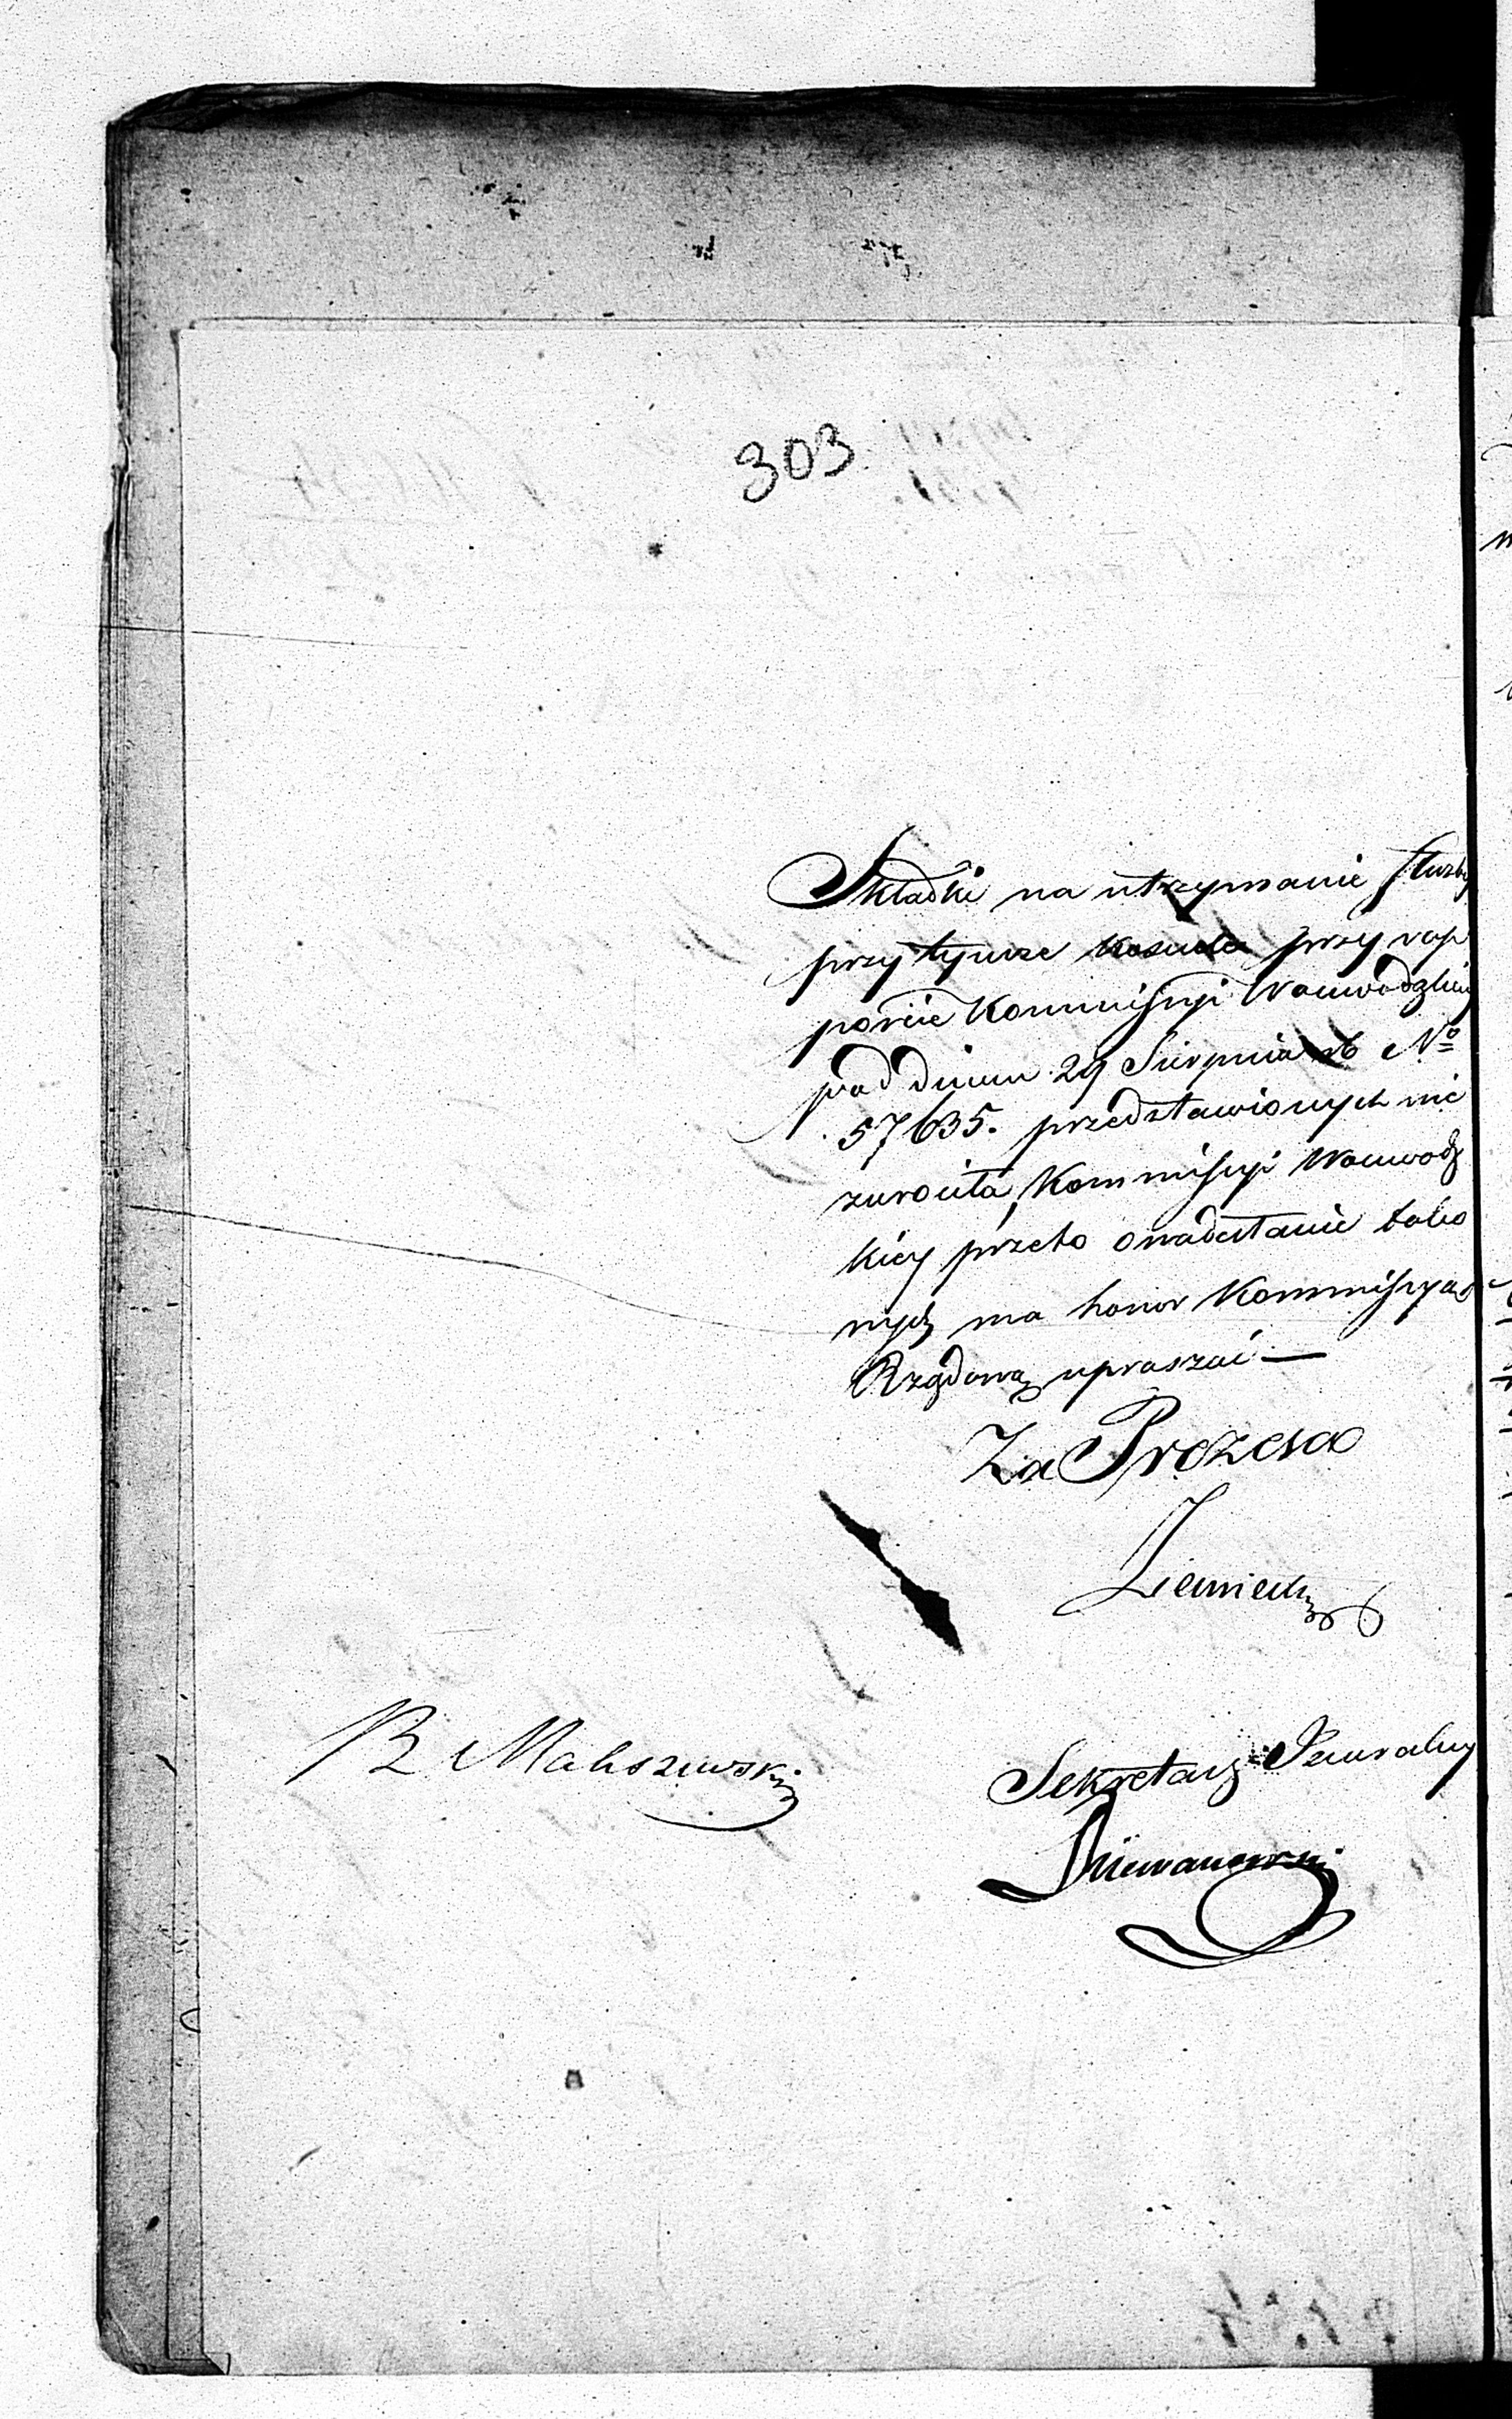 303
Składki na utrzymanie służby
przy tymże przy rap
porcie Kommissyi Woiewodzkiey
pod dniem 29 Sierpnia rb Nº
57635. przedstawionych nie
zwrociła, Kommissyi Woiewodz
kiey przeto o nadesłanie tako
wych ma honor Kommissyą
Rządową upraszać —
Za Prezesa
Sekretarz Jeneralny
R Maliszewski